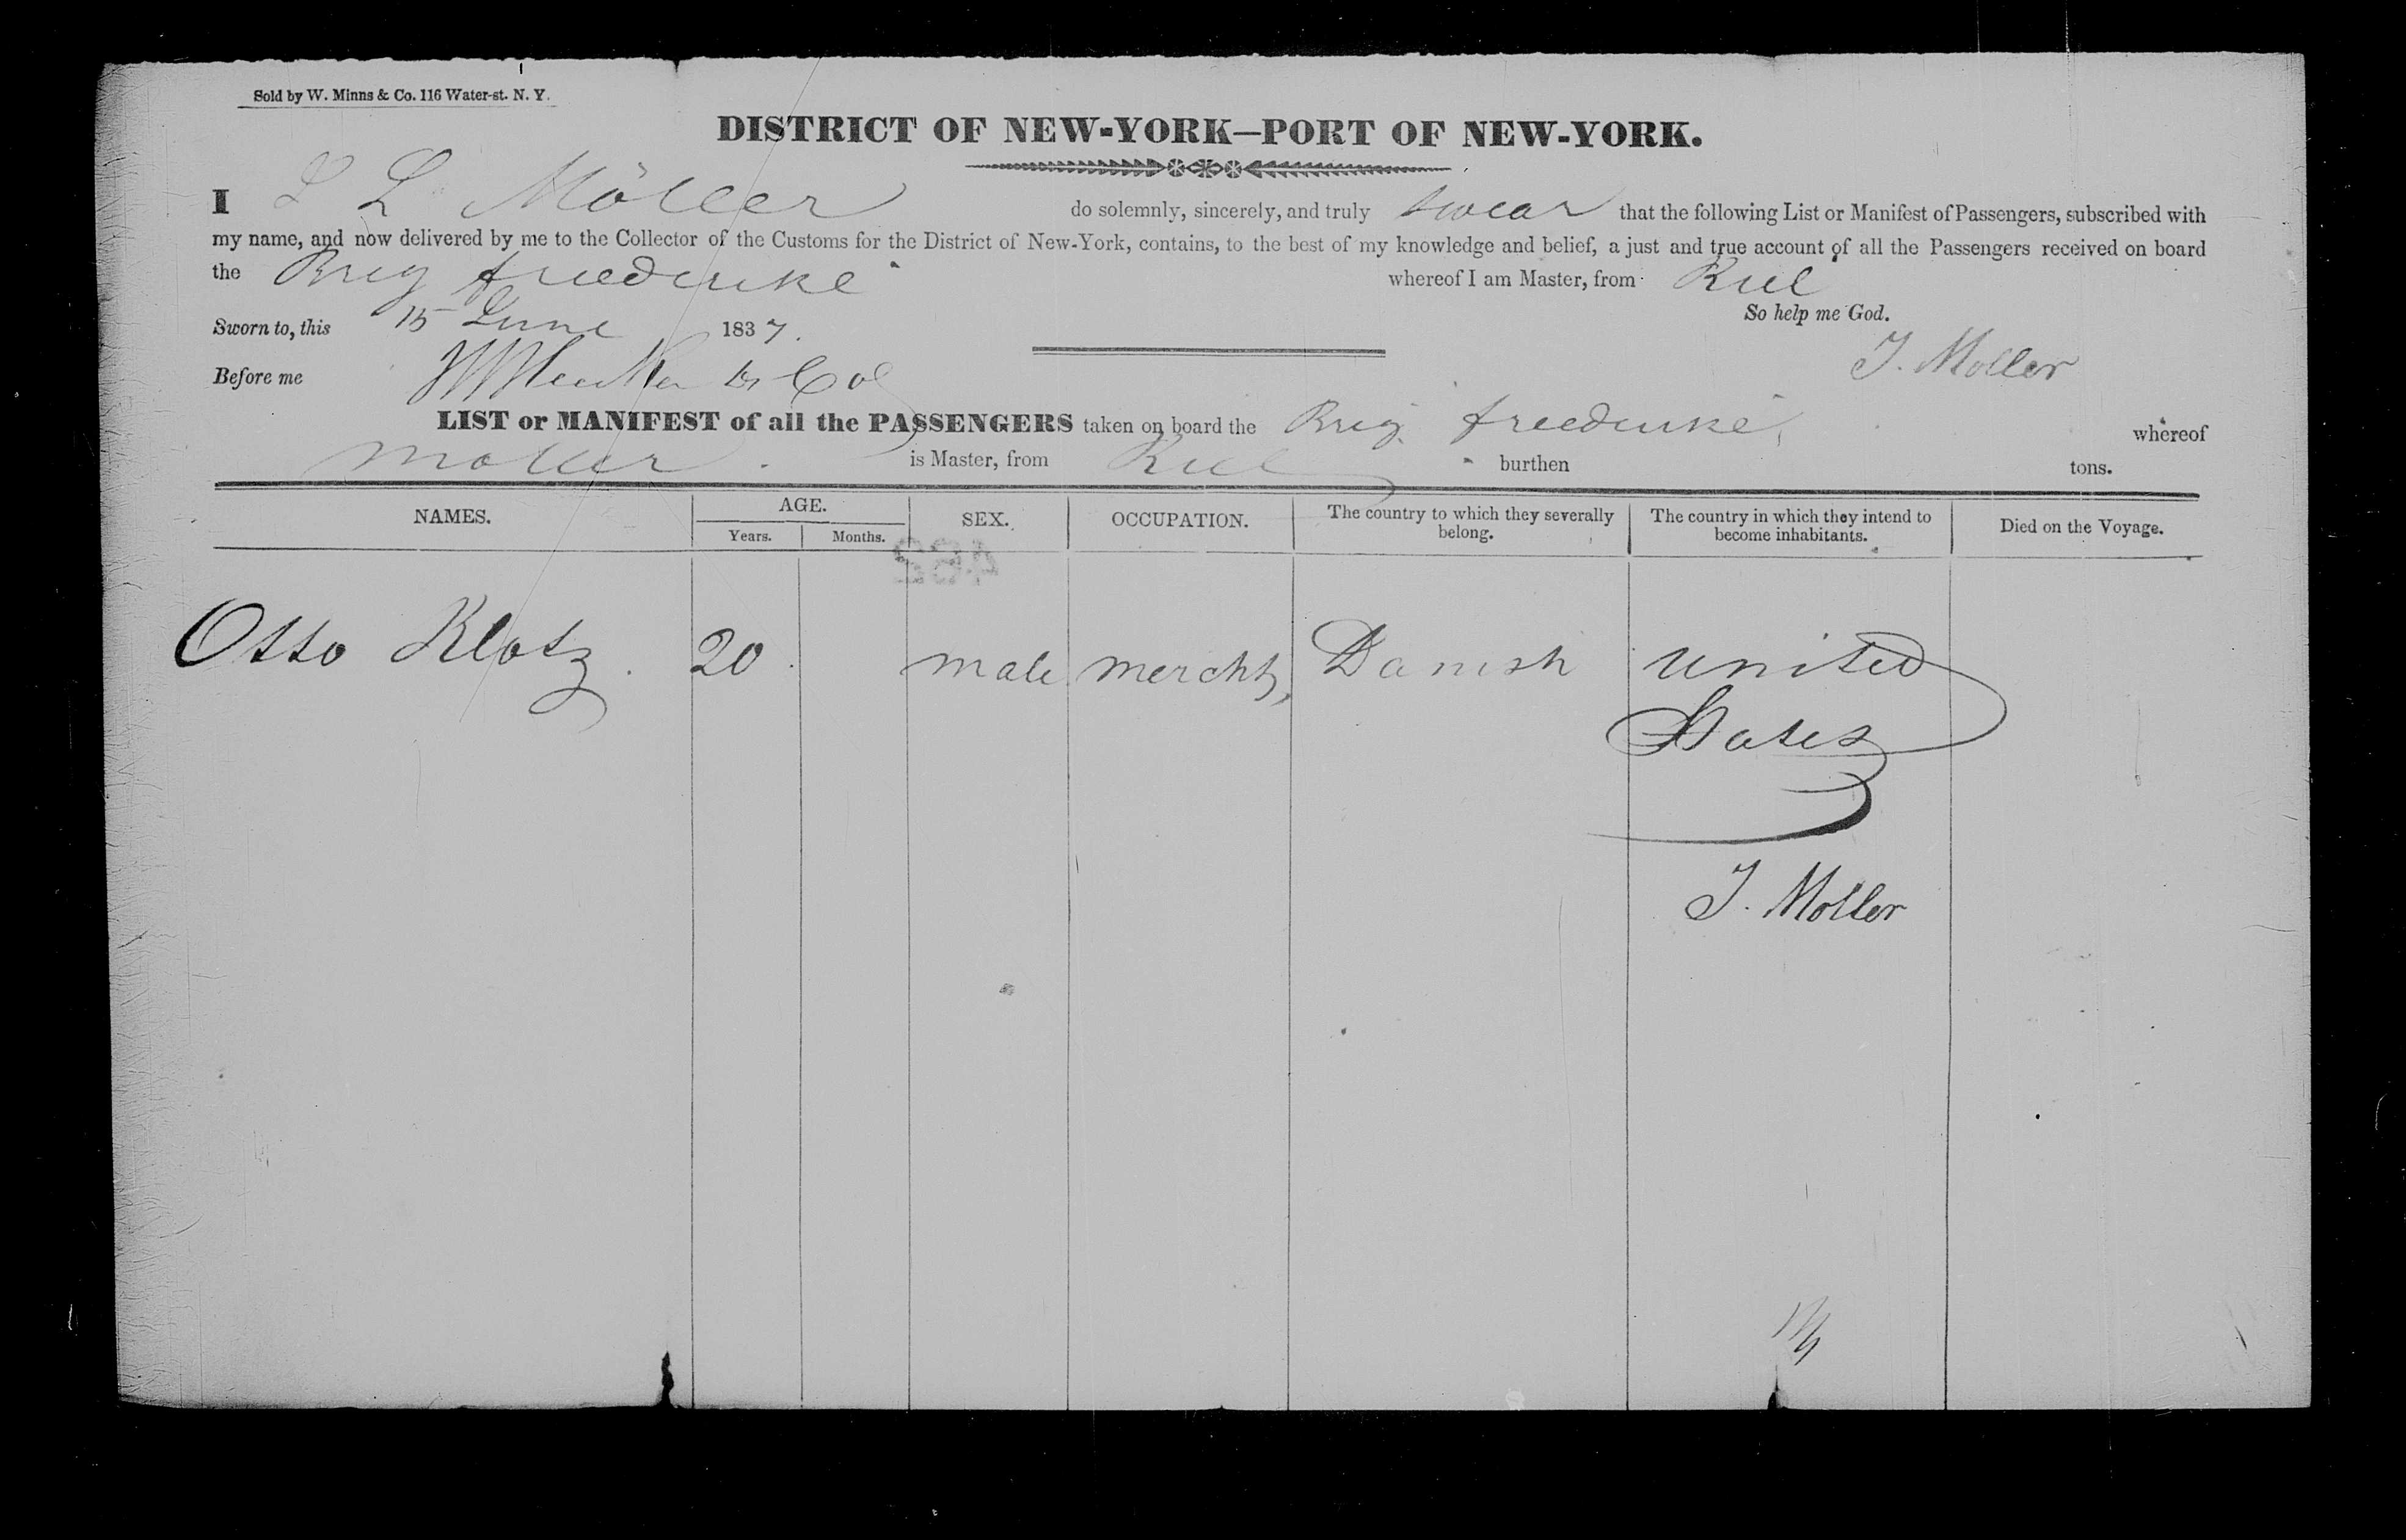 Sold by W. Minns & Co. 116 Water-st. N. Y.
DISTRICT OF NEW-YORK—PORT OF NEW-YORK.
I L L Möller do solemnly, sincerely, and truly swear that the following List or Manifest of Passengers, subscribed with
my name, and now delivered by me to the Collector of the Customs for the District of New-York, contains, to the best of my knowledge and belief, a just and true account of all the Passengers received on board
the Brig friederike whereof I am Master, from Kiel
So help me God.
Sworn to, this 15 June 1837.
J. Moller
Before me Col
LIST or MANIFEST of all the PASSENGERS taken on board the Brig friederike, whereof
Moller is Master, from Kiel burthen tons.
NAMES. AGE. SEX. OCCUPATION. The country to which they severally belong. The country in which they intend to become inhabitants. Died on the Voyage.
Years. Months.
482
Otto Klotz. 20. male mercht, Danish United
States
J. Moller